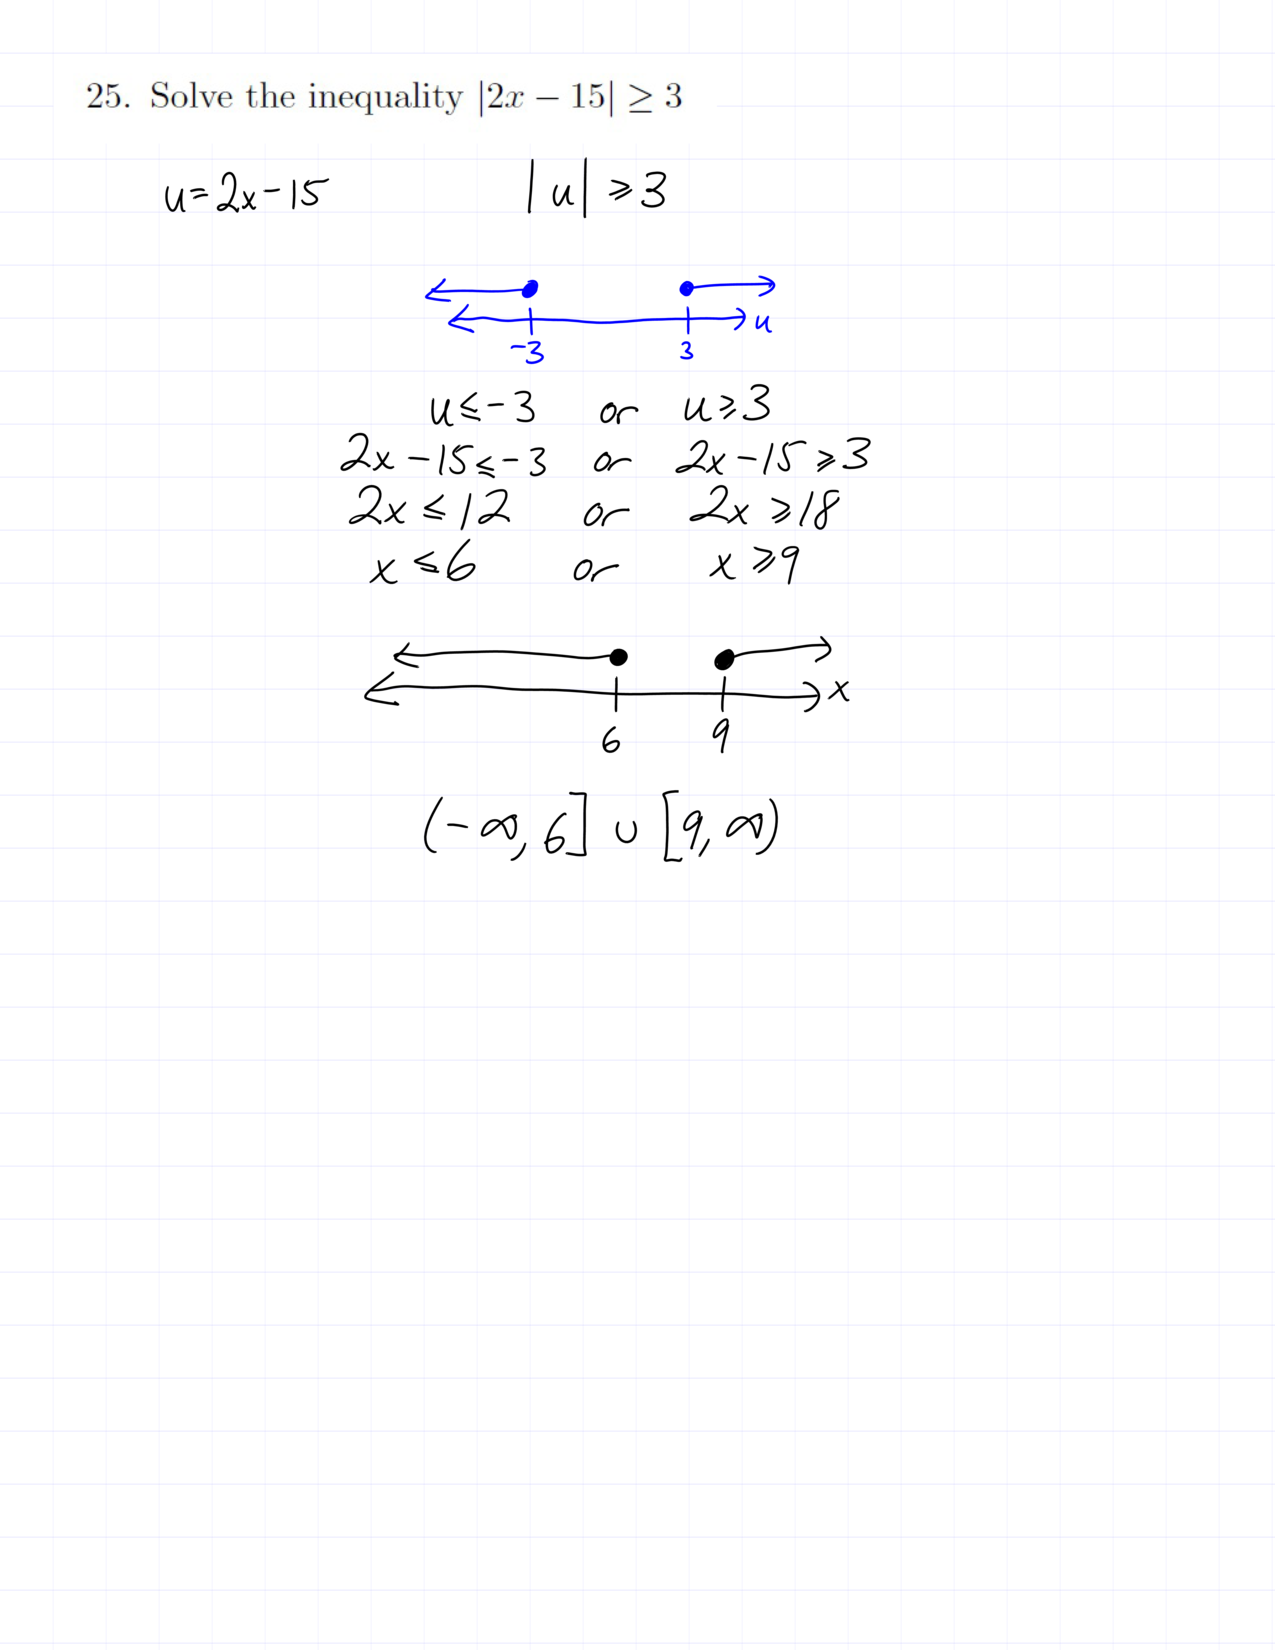 25. Solve the inequality |2x − 15| ≥ 3
u=2x-15 |u| ⩾3
u
-3 3
u⩽-3 or u⩾3
2x-15⩽-3 or 2x-15⩾3
2x⩽12 or 2x⩾18
x⩽6 or x⩾9
x
6 9
(-∞,6] ∪ [9,∞)